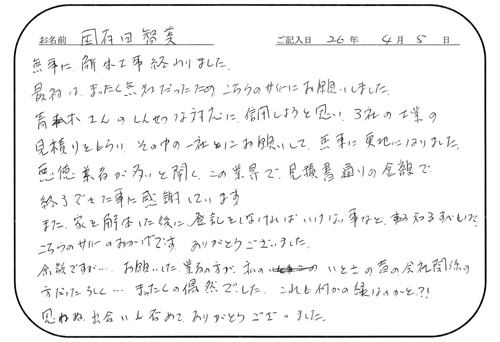 お名前 国府田智美 ご記入日 26年 4月 5日
無事に、解体工事終わりました。
最初は、まったく無知だったため こちらのサイトにお願いしました。
青木さんのしんせつな対応に、信用しようと思い、3社の工業の
見積りをもらい、その中の一社にお願いして、無事に更地になりました。
悪徳業者が多いと聞く、この業界で、見積書通りの金額で
終了できた事に感謝しています
また、家を解体した後に、登記をしなければいけない事など、知るすべもで、
こちらのサイトのおかげです ありがとうございました。
余談ですが… お願いした業者の方が、私の いとこの昔の会社関係の
方だったらしく… まったくの偶然でした。これも何かの縁なのかと?!
思わぬ出合いも含めて、ありがとうございました。